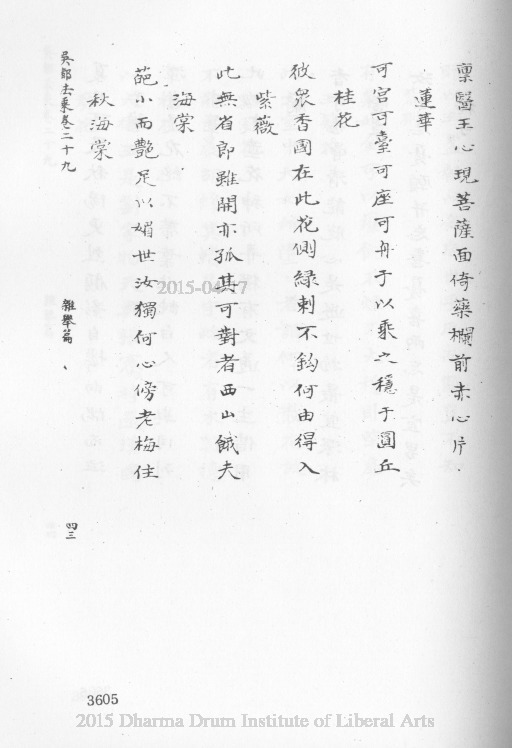 稟醫王心現菩薩面倚藥欄前赤心片片
蓮華
可宮可臺可座可舟于以乘之穩于圓丘
桂花
彼眾香國在此花側綠刺不鈎何由得入
紫薇
此無省郎雖開亦孤其可對者西山餓夫
海棠
葩小而艷足以媚世汝獨何心傍老梅住
秋海棠
吳都法乘卷二十九
雜舉篇
四三
3605
2015-04-17
2015 Dharma Drum Institute of Liberal Arts